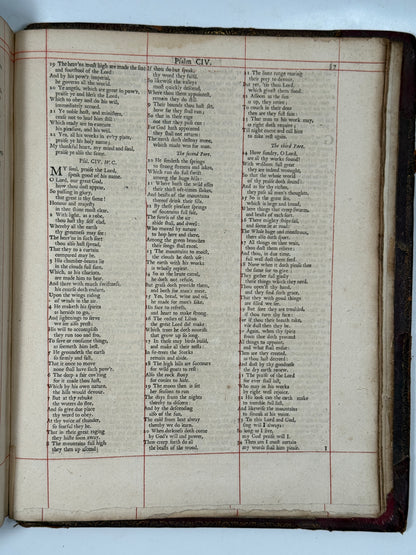 Psalm CIV.
57
19 The heav'ns most high are made the seat
and footstool of the Lord:
And by his pow'r imperial,
he governs all the world.
20 Ye angels, which are great in pow'r,
praise ye and bless the Lord:
Which to obey and do his will,
immediately accord.
21 Ye noble host, and ministers,
cease not to laud him still:
Which ready are to execute
his pleasure, and his will.
22 Yea, all his works in ev'ry place,
praise ye his holy name:
My thankful heart, my mind and soul,
praise ye also the same.
Psal. CIV. W. C.
MY soul, praise the Lord,
speak good of his name.
O Lord, our great God,
how dost thou appear,
So passing in glory,
that great is thy fame!
Honour and majesty
in thee most clear.
2 With light, as a robe
thou hast thy self clad,
Whereby all the earth
thy greatness may see:
The heav'ns in such sort
thou also hast spread,
That they to a curtain
compared may be.
3 His chamber-beams lie
in the clouds full sure,
Which, as his chariots,
are made him to bear:
And there with much swiftness,
his course doth endure,
Upon the wings riding
of winds in the air.
4 He maketh his spirits
as heralds to go,
And lightnings to serve
we see also prest:
His will to accomplish
they run to and fro,
To save or consume things,
as seemeth him best.
5 He groundeth the earth
so firmly and fast,
That it once to move
none shall have such pow'r:
6 The deep a fair covering
for it made thou hast,
Which by his own nature,
the hills would devour:
7 But at thy rebuke
the waters do flee,
And so give due place
thy word to obey.
At thy voice of thunder,
so fearful they be,
That in their great raging
they haste soon away.
8 The mountains full high
they then up ascend;
If thou do but speak,
thy word they fulfil:
So likewise the valleys
most quickly descend,
Where thou them appointest,
remain they do still.
9 Their bounds thou hast set,
how far they shall run;
So that in their rage
not that they pass can:
For God hath appointed
they shall not return
The earth to destroy more,
which made was for man.
The second Part.
10 He sendeth the springs
to strong streams and lakes,
Which run do full swift
among the huge hills:
11 Where both the wild asses
their thirst oft-times slakes,
And beasts of the mountains
thereof drink their fills.
12 By these pleasant springs
of fountains full fair,
The fowls of the air
abide shall, and dwell:
Who moved by nature
to hop here and there,
Among the green branches
their songs shall excel.
13 The mountains to moist,
the clouds he doth use:
The earth with his works
is wholly replete.
14 So as the brute cattel,
he doth not refuse,
But grass doth provide them,
and herb for man's meat.
15 Yea, bread, wine and oil,
he made for man's sake,
His face to refresh,
and heart to make strong.
16 The cedars of Liban
the great Lord did make:
Which trees he doth nourish
that grow up so long.
17 In these may birds build,
and make all their nests:
In fir-trees the Storks
remain and abide.
18 The high hills are succours
for wild goats to rest:
Also the rock stony
for conies to hide.
19 The moon then is set
her seasons to run:
The days from the nights
thereby to discern:
And by the descending
also of the sun,
The cold from heat alway
thereby we do learn.
20 When darkness doth come
by God's will and power,
Then creep forth do all
the beasts of the wood.
21 The lions range roaring
their prey to devour,
But yet, 'tis thou Lord,
which givest them food.
22 Assoon as the sun
is up, they retire;
To couch in their dens
then are they full fain:
23 That man to his work may,
as right doth require;
Till night come and call him
to take rest again.
The third Part.
24 How sundry, O Lord,
are all thy works found!
With wisdom full great
they are indeed wrought,
So that the whole world
of thy praise doth sound!
And as for thy riches,
they pass all mens thought.
25 So is the great sea,
which is large and broad,
Where things that creep swarm,
and beasts of each sort.
26 There mighty ships sail,
and some lie at road:
The Whale huge and monstrous,
there also doth sport.
27 All things on thee wait,
thou dost them relieve:
And thou, in due time,
full well dost them feed.
28 Now when it doth please thee
the same for to give:
They gather full gladly
those things which they need.
Thou openest thy hand,
and they find such grace,
That they with good things
are filled we see.
29 But sore they are troubled,
if thou turn thy face:
For if thou their breath take,
vile dust then they be.
30 Again, when thy spirit
from thee doth proceed
All things to appoint,
and what shall ensue:
Then are they created,
as thou hast decreed:
And dost by thy goodness
the dry earth renew.
31 The praise of the Lord
for ever shall last,
Who may in his works
by right well rejoyce.
32 He look can the earth make
to tremble full fast,
And likewise the mountains
to smoak at his voice.
33 To this Lord and God
sing will I always:
So long as I live,
my God praise will I.
34 Then am I most certain
my words shall him please:
I